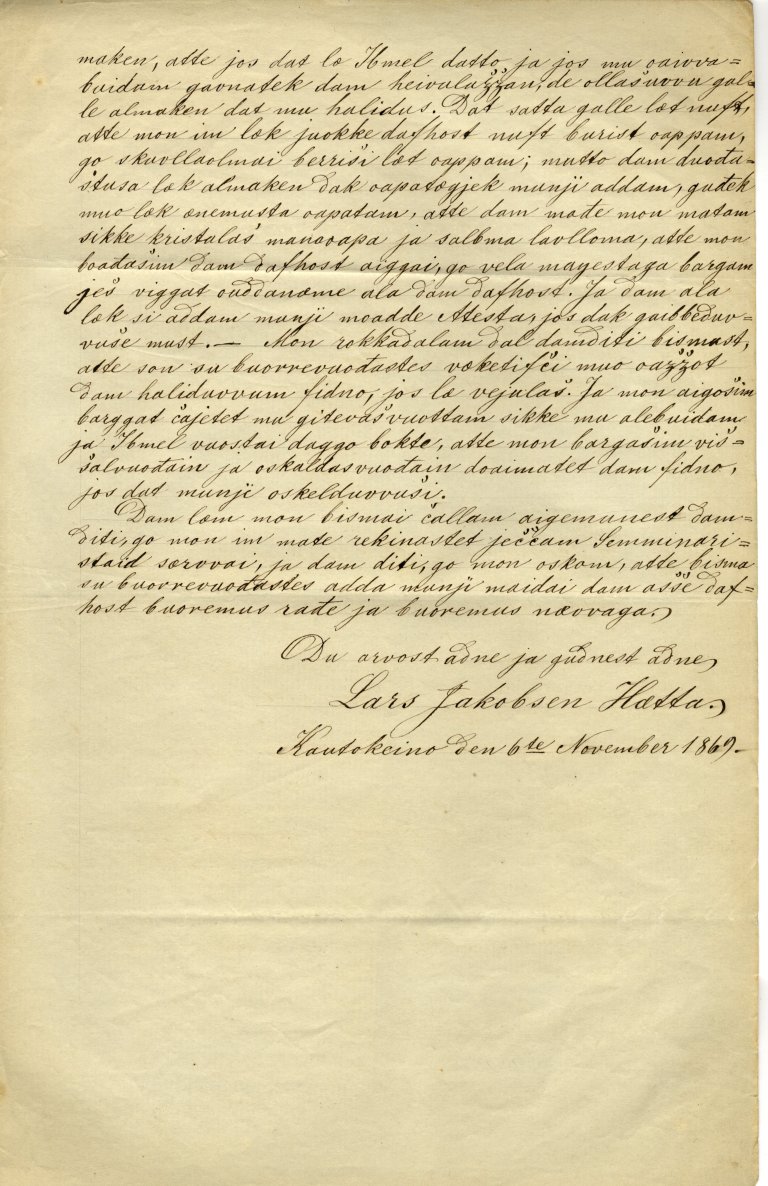 maken, atte jos dat læ Ibmel datto, ja jos mu oaivva=
buidam gavnatek dam heivulaʒʒan, de ollašuvvu gal=
le almaken dat mu halidus. Dat satta galle læt nuft,
atte mon im læk juokke dafhost nuft burist oappam,
go skuvllaolmai berriši læt oappam; mutto dam duođa=
štusa læk almaken dak oapatægjek munji addam, guđek
muo læk ænemusta oapatam, atte dam mađe mon matam
sikke kristalaš manaoapa ja salbma lavlloma, atte mon
boađašim dam dafhost aiggai, go vela mayestaga bargam
ješ viggat ouddanæme ala dam dafhost. Ja dam ala
læk si addam munji moadde Attestar, jos dak gaibbeduv=
vuše must. — Mon rokkadalam dal damditi bismast,
atte son su buorrevuođastes væketifči muo oaʒʒot
dam haliduvvum fidno, jos læ vejulaš. Ja mon aigošim
barggat čajetet mu gitevašvuottam sikke mu alebuidam
ja Ibmel vuostai daggo bokte, atte mon bargašim viš=
šalvuođain ja oskaldasvuođain doaimatet dam fidno,
jos dat munji oskelduvvuši.
Dam læm mon bismai čallam aigemunest dam=
diti, go mon im mate rekinastet ješčam Semminari=
staid særvvai, ja dam diti, go mon oskom, atte bisma
su buorrevuođastes adda munji maidai dam ašše daf=
host buoremus rađe ja buoremus nævvaga.
Du arvost adne ja gudnest adne
Lars Jakobsen Hætta.
Kautokeino den 6te November 1869.